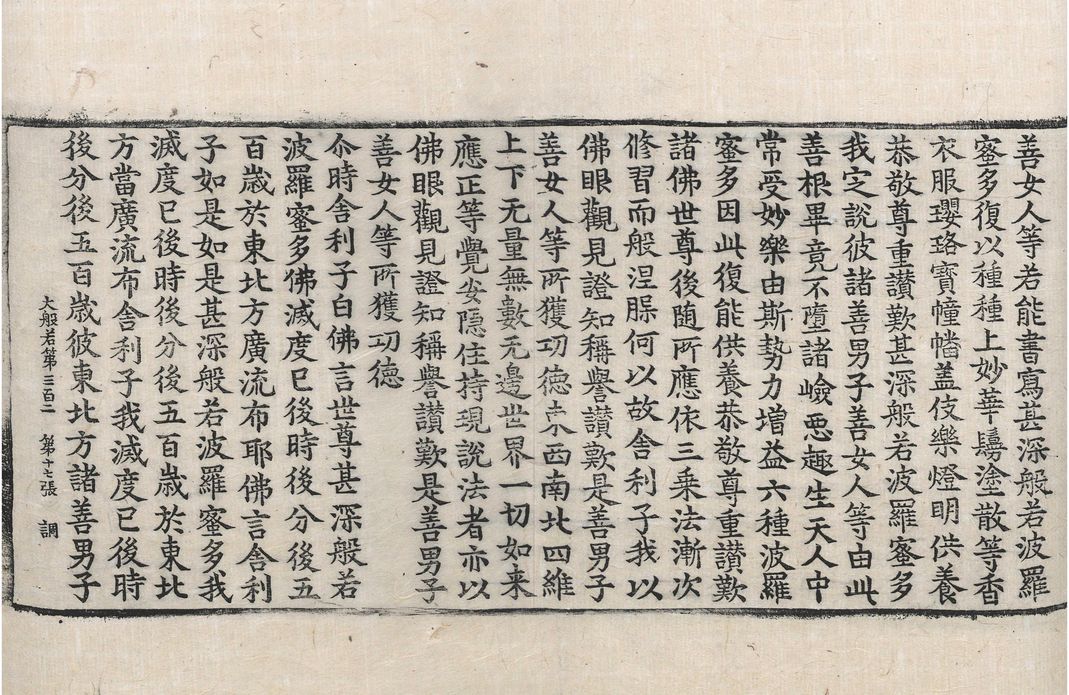 善女人等若能書寫甚深般若波羅
蜜多復以種種上妙華鬘塗散等香
衣服瓔珞寶幢幡盖伎樂燈明供養
恭敬尊重讃歎甚深般若波羅蜜多
我定說彼諸善男子善女人等由此
善根畢竟不墮諸嶮惡趣生天人中
常受妙樂由斯勢力增益六種波羅
蜜多因此復能供養恭敬尊重讃歎
諸佛世尊後随所應依三乗法漸次
修習而般涅脲何以故舍利子我以
佛眼觀見證知稱譽讃歎是善男子
善女人等所獲功德東西南北四維
上下无量無數无邊世界一切如来
應正等覺安隱住持現說法者亦以
佛眼觀見證知稱譽讃歎是善男子
善女人等所獲功德
尒時舍利子白佛言世尊甚深般若
波羅蜜多佛滅度已後時後分後五
百歲於東北方廣流布耶佛言舍利
子如是如是甚深般若波羅蜜多我
滅度已後時後分後五百歲於東北
方當廣流布舍利子我滅度已後時
後分後五百歲彼東北方諸善男子
大般若第三百二 第十七張 調